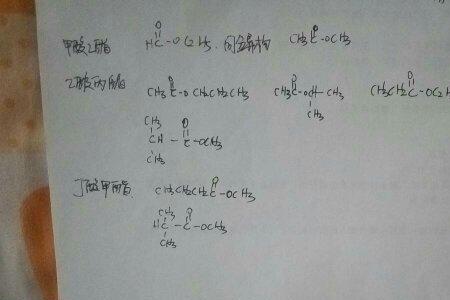 甲酸乙酯 HC(=O)-OC2H5. 同分异构 CH3C(=O)-OCH3
乙酸丙酯 CH3C(=O)-O CH2CH2CH3 CH3C(=O)-OCH(CH3)-CH3 CH3CH2C(=O)-OC2H
CH3-CH(CH3)-C(=O)-OCH3
丁酸甲酯. CH3CH2CH2C(=O)-OCH3
HC(CH3)(CH3)-C(=O)-OCH3